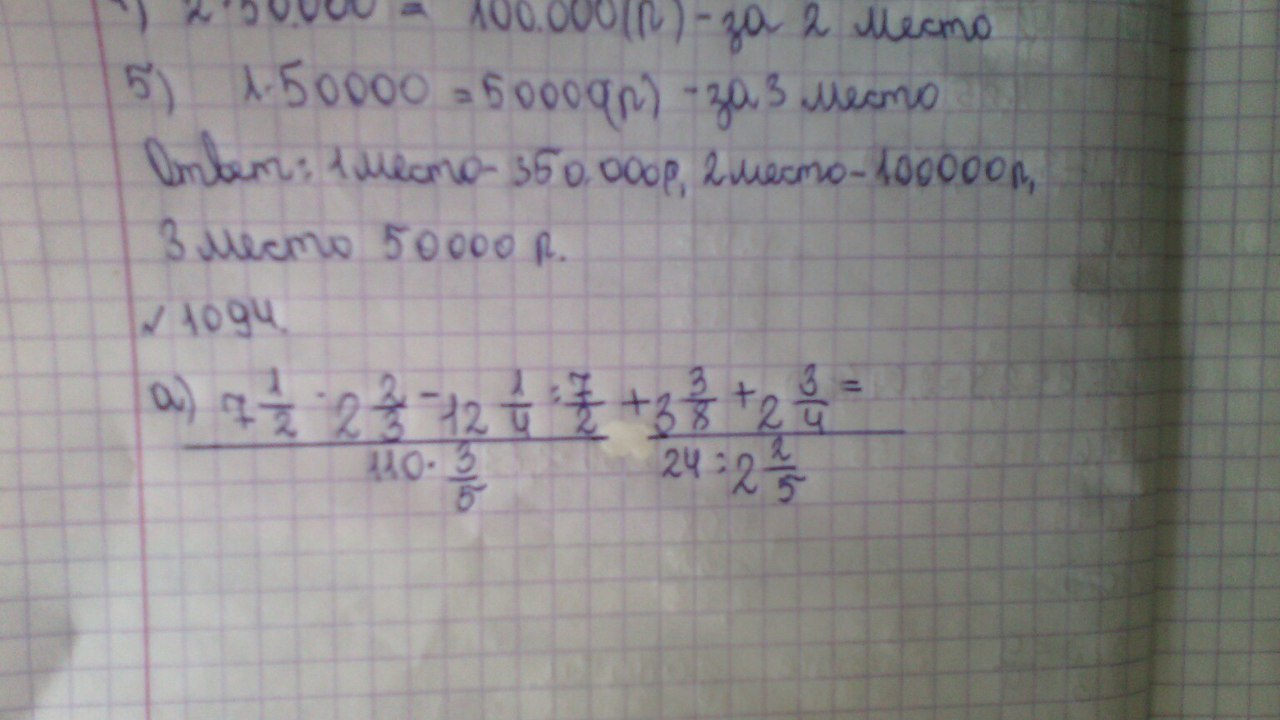 2·50.000 = 100.000(р) - за 2 место
5) 1·50000 = 50000(р) - за 3 место
Ответ: 1 место - 350.000р, 2 место - 100000р,
3 место 50000 р.
√ 1094.
а) 7 1/2 · 2 2/3 - 12 1/4 : 7/2 + 3 3/8 + 2 3/4 =
110 · 3/5 24 : 2 2/5